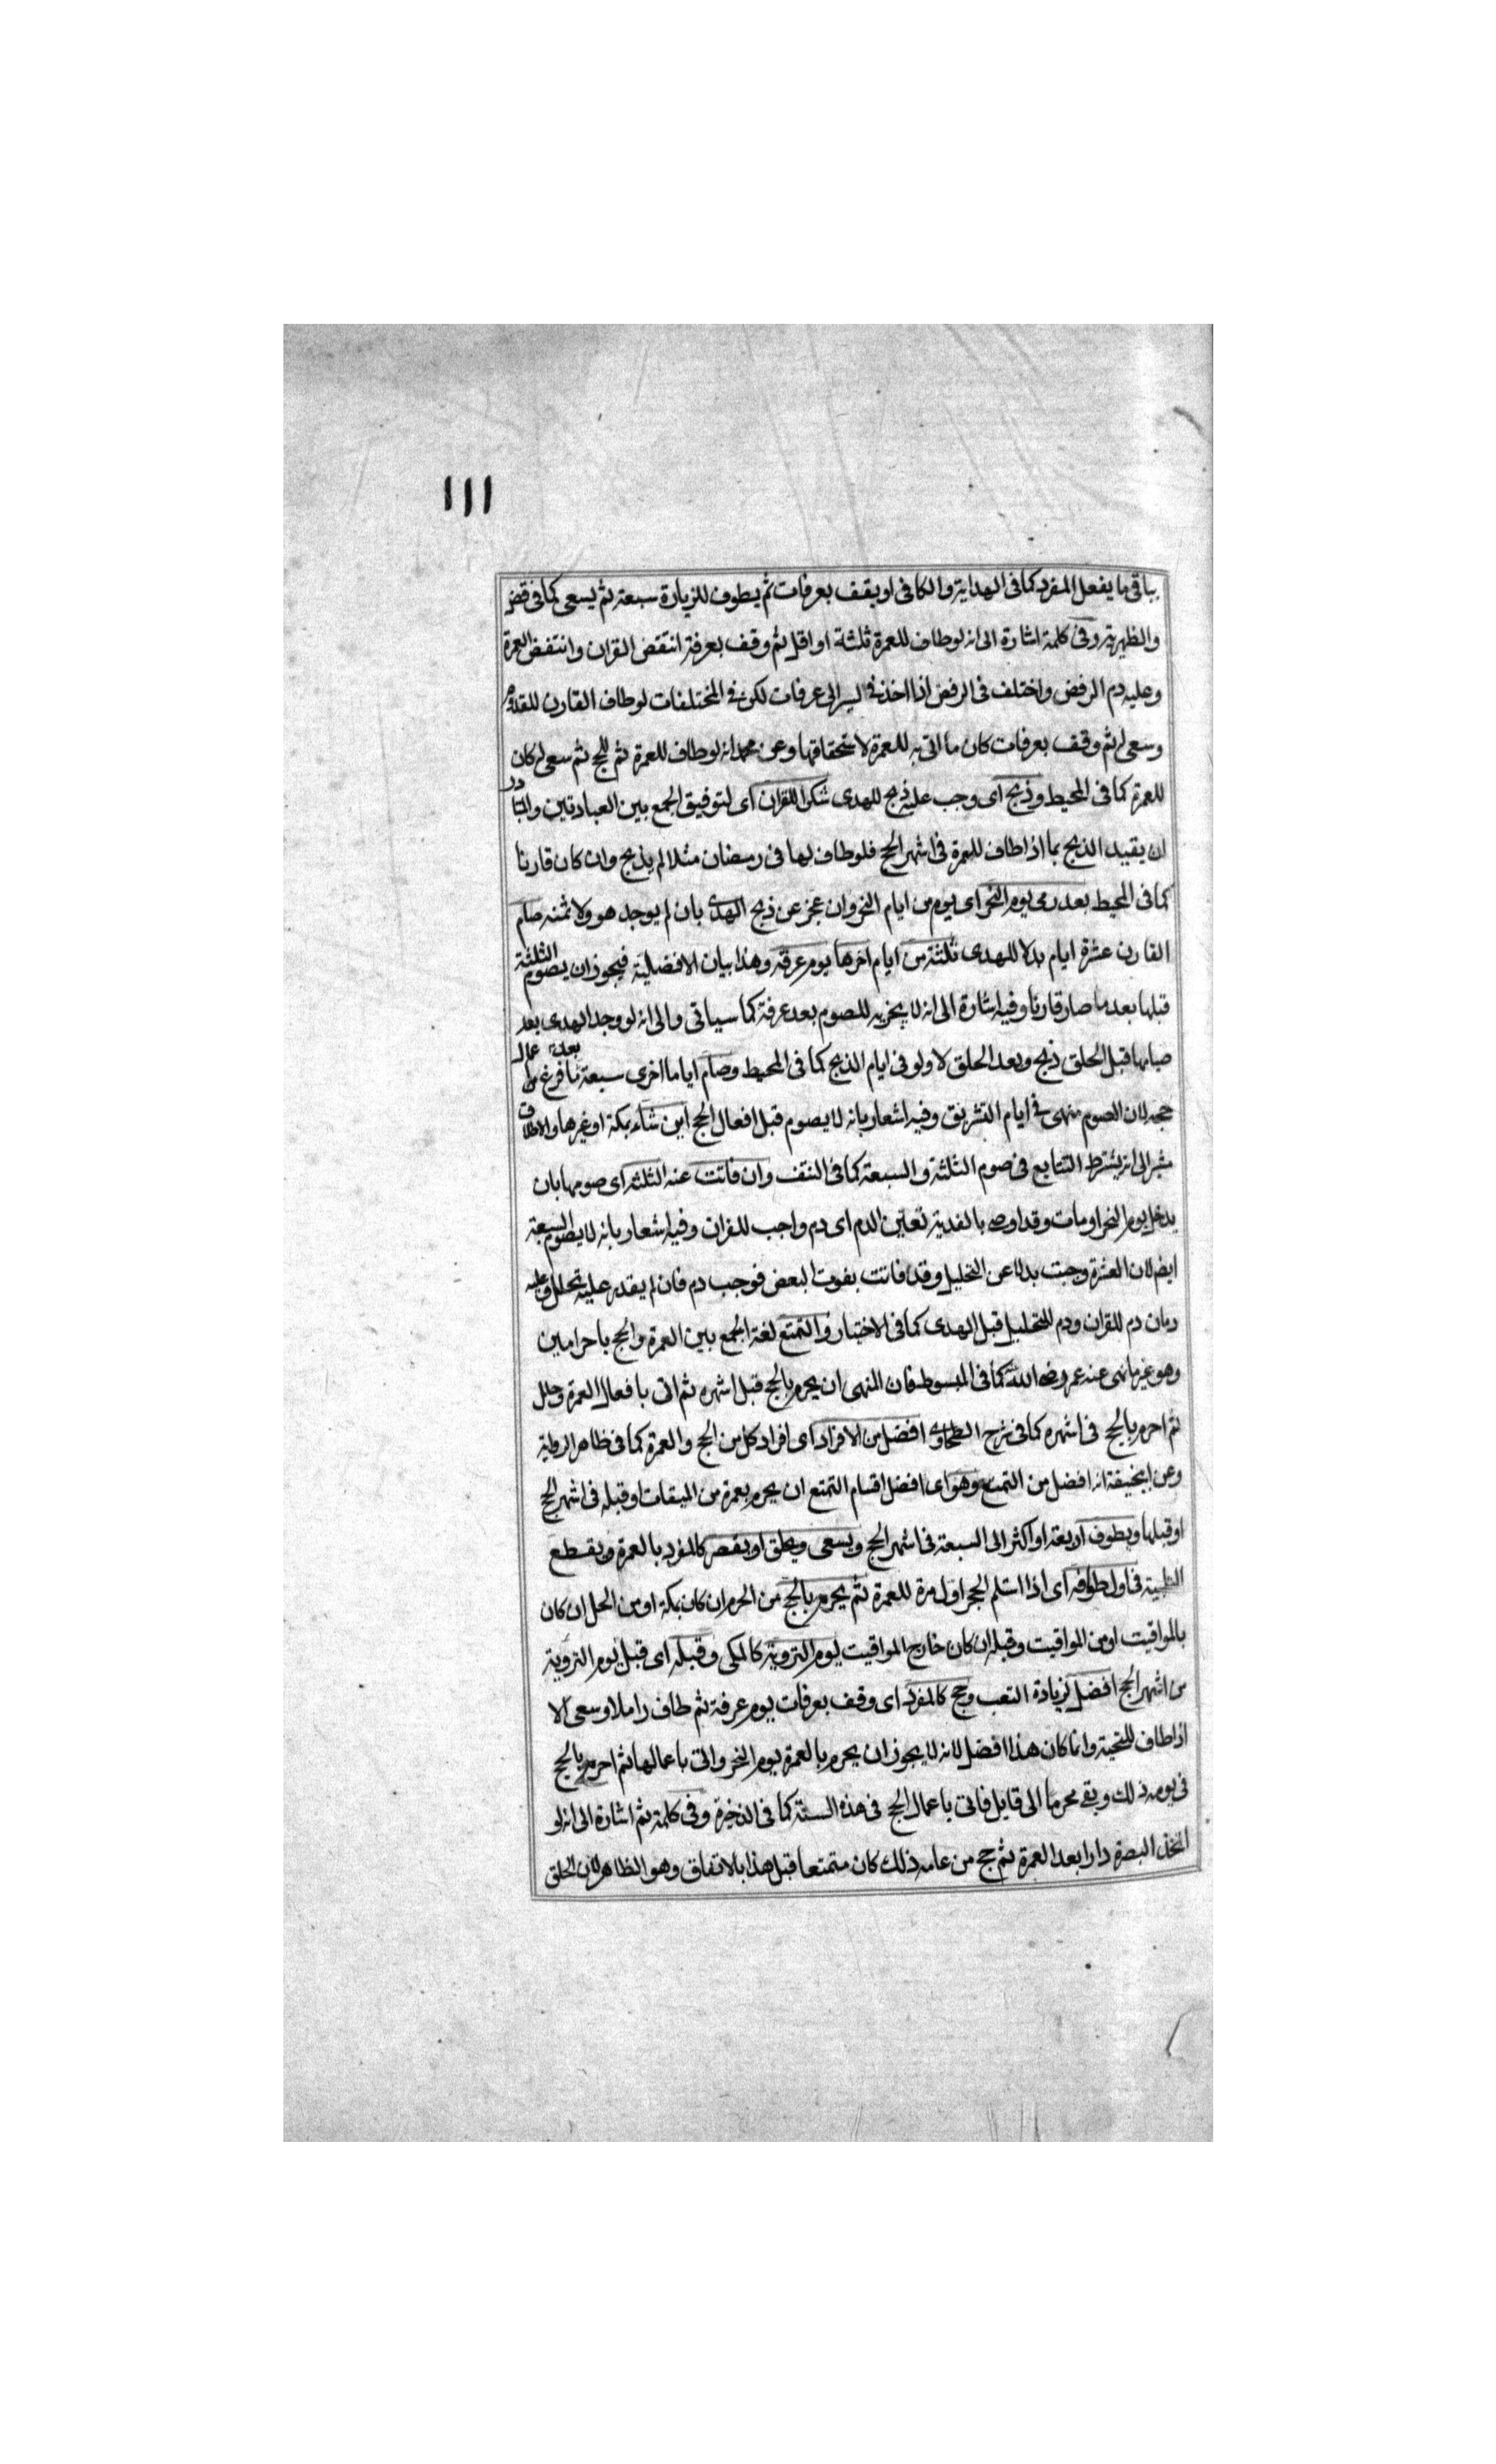 ١١١
بباقى ما يفعل المفرد كما فى الهداية والكافى او يقف بعرفات ثم يطوف للزيارة سبعة ثم يسعى كما فى قض
والظهيرية وفى كلمة اشارة الى انه لو طاف للعمرة ثلثة او اقل ثم وقف بعرفة انتقض القران وانتقض العمرة
وعليه دم الرفض واختلف فى الرفض اذا اخذ فى السير الى عرفات لكن فى المختلفات لو طاف القارن للقدوم
وسعى له ثم وقف بعرفات كان ما اتى به للعمرة لاستحقاقها وعن محمد انه لو طاف للعمرة ثم للحج ثم سعى له كان
للعمرة كما فى المحيط وذبح اى وجب عليه ذبح للهدى شكرا للقران اى لتوفيق الجمع بين العبادتين والمتبادر
ان يقيد الذبح بما اذا طاف للعمرة فى اشهر الحج فلو طاف لها فى رمضان مثلا لم يذبح وان كان قارنا
كما فى المحيط بعد رمى يوم النحر اى يوم من ايام النحر وان عجز عن ذبح الهدى بان لم يوجد هو ولا ثمنه صام
القارن عشرة ايام بدلا للهدى ثلثة من ايام اخرها يوم عرفة وهذا بيان الافضلية فيجوز ان يصوم الثلثة
قبلها بعد ما صار قارنا وفيه اشارة الى انه لا يجزيه للصوم بعد عرفة كما سياتى والى انه لو وجد الهدى بعد
صيامها قبل الحلق ذبح وبعد الحلق لا ولو فى ايام الذبح كما فى المحيط وصام اياما اخرى سبعة بعد ما فرغ من اعمال
حجه لان الصوم منهى فى ايام التشريق وفيه اشعار بانه لا يصوم قبل افعال الحج اين شاء بمكة او غيرها والاطلاق
مشير الى انه يشترط التتابع فى صوم الثلثة والسبعة كما فى النتف وان فاتت عنه الثلثة اى صومها بان
يدخل يوم النحر او مات وقد اوصى بالفدية تعين الدم اى دم واجب للقران وفيه اشعار بانه لا يصوم السبعة
ايضا لان العشرة وجبت بدلا عن التحليل وقد فاتت بفوت البعض فوجب دم فان لم يقدر عليه تحلل وعليه
دمان دم للقران ودم للتحليل قبل الهدى كما فى الاختيار والتمتع لغة الجمع بين العمرة والحج باحرامين
وهو غير ما نهى عنه عمر رضى الله كما فى المبسوط فان المنهى ان يحرم بالحج قبل اشهره ثم اتى بافعال العمرة وحلل
ثم احرم بالحج فى اشهره كما فى شرح الطحاوى افضل من الافراد اى افراد كل من الحج والعمرة كما فى ظاهر الرواية
وعن ابى حنيفة انه افضل من التمتع وهو اى افضل اقسام التمتع ان يحرم بعمرة من الميقات او قبله فى اشهر الحج
او قبلها ويطوف اربعة او اكثر الى السبعة فى اشهر الحج ويسعى ويحلق او يقصر كالمفرد بالعمرة ويقطع
التلبية فى اول طوافه اى اذا استلم الحجر اول مرة للعمرة ثم يحرم بالحج من الحرم ان كان بمكة او من الحل ان كان
بالمواقيت او من المواقيت وقبله ان كان خارج المواقيت يوم التروية كالمكى وقبله اى قبل يوم التروية
من اشهر الحج افضل لزيادة التعب وحج كالمفرد اى وقف بعرفات يوم عرفة ثم طاف راملا وسعى الا
اذا طاف للتحية وانما كان هذا افضل لانه لا يجوز ان يحرم بالعمرة يوم النحر واتى باعمالها ثم احرم بالحج
فى يومه ذلك وبقى محرما الى قابل فاتى باعمال الحج فى هذه السنة كما فى الذخيرة وفى كلمة ثم اشارة الى انه لو
اتخذ البصرة دارا بعد العمرة ثم حج من عامه ذلك كان متمتعا قبل هذا بالاتفاق وهو الظاهر لان الحلق